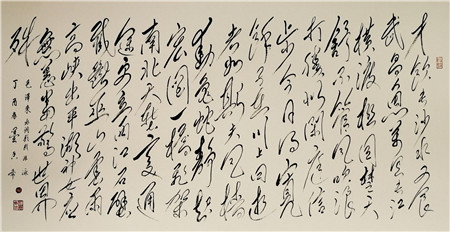 才饮长沙水又食
武昌鱼万里长江
横渡极目楚天
舒不管风吹浪
打胜似闲庭信
步今日得宽
馀子在川上曰逝
者如斯夫风樯
动龟蛇静起
宏图一桥飞架
南北天堑变通
途更立西江石壁
截断巫山云雨
高峡出平湖神女应
无恙当惊世界
殊
毛泽东水调歌头游泳
丁酉